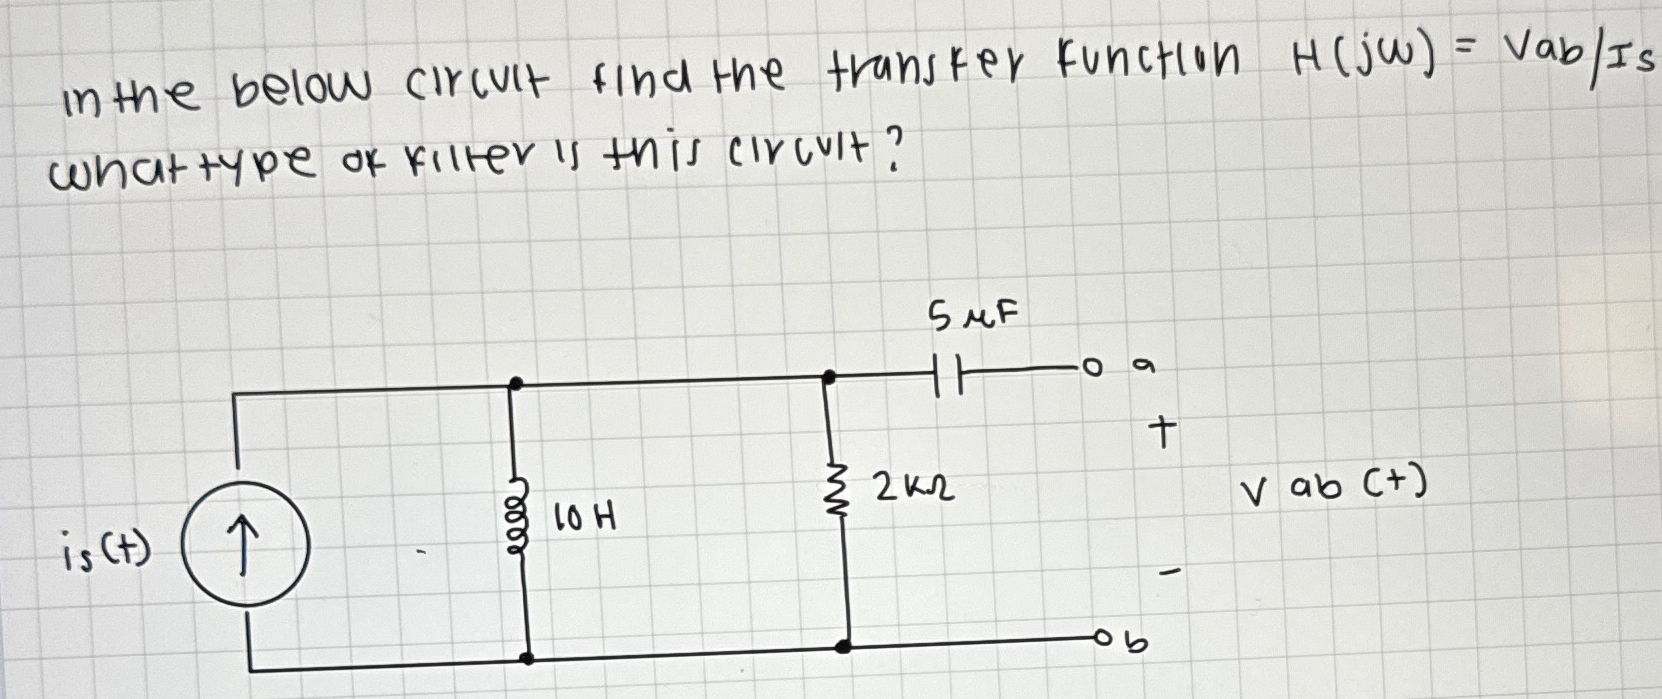 in the below circuit find the transfer function H(jω) = Vab/Is
what type of filter is this circuit?
5 μF
a
+
is(t)
10 H
2kΩ
v ab (t)
-
b